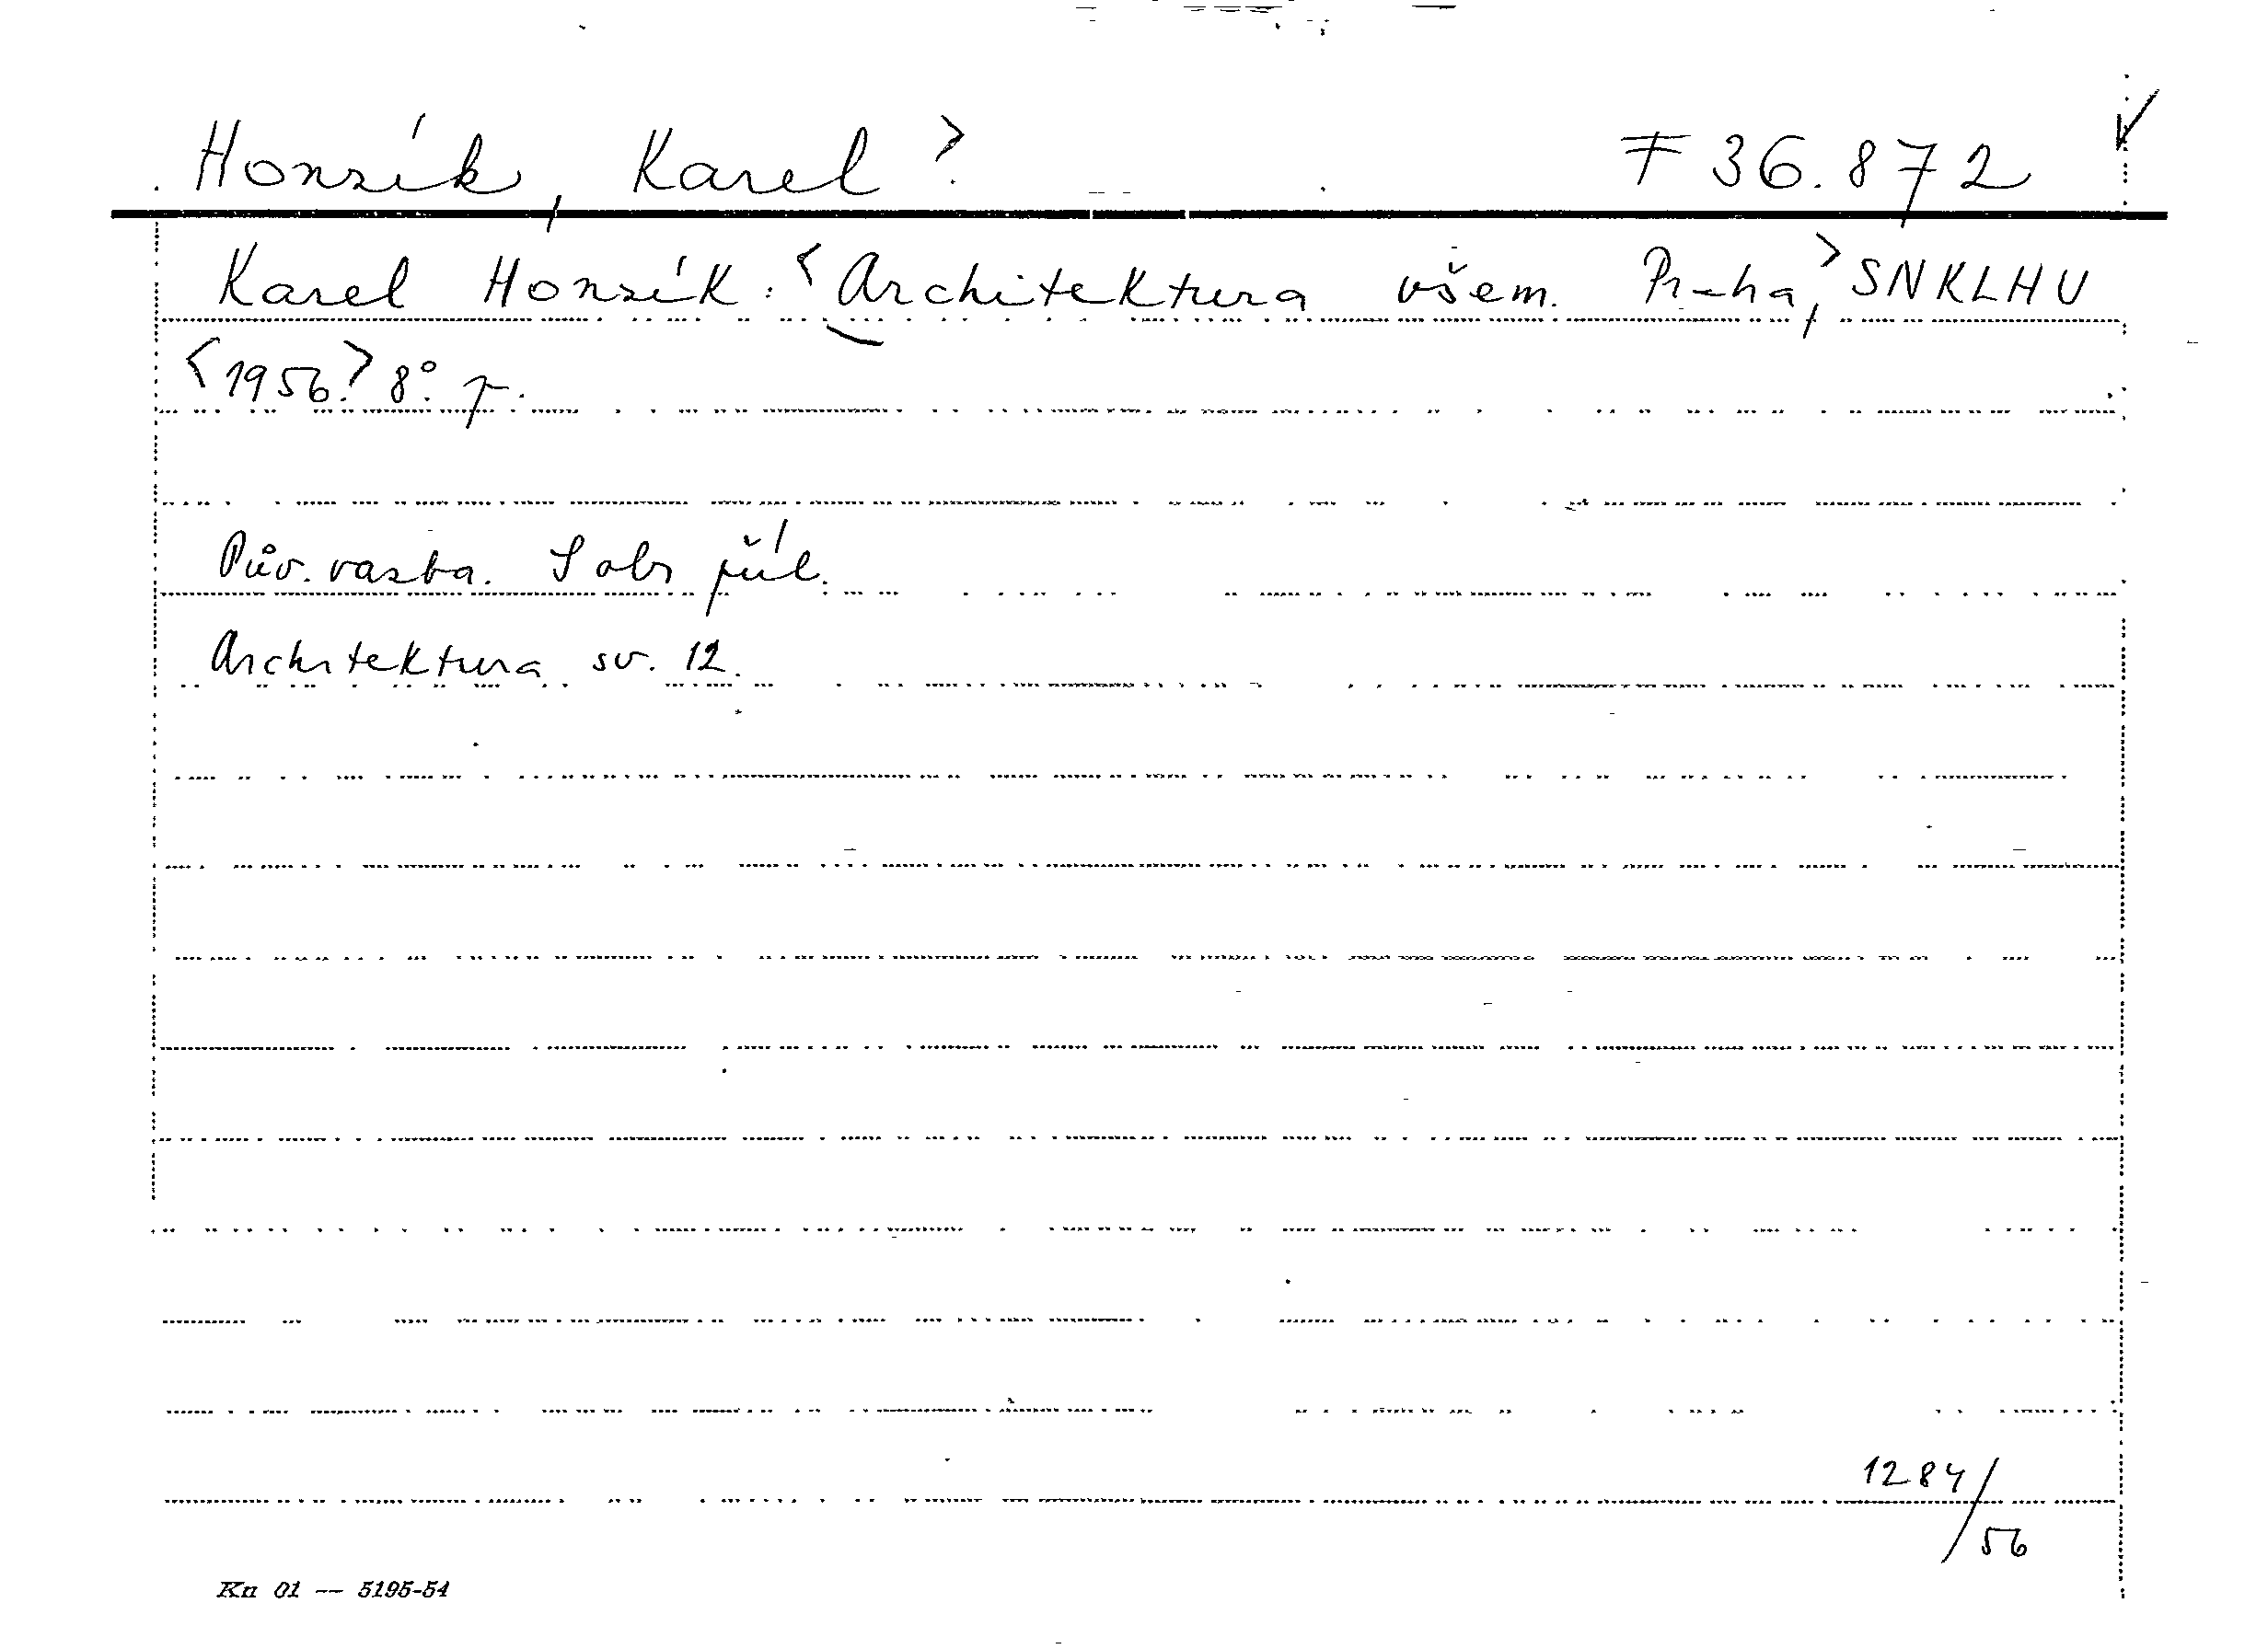 Honzík, Karel > F 36.872
Karel Honzík: <Architektura všem. Praha,> SNKLHU
<1956.> 8°. p.
Pův. vazba. S obr příl.
Architektura sv. 12.
1284/56
Kn 01 — 5195-54